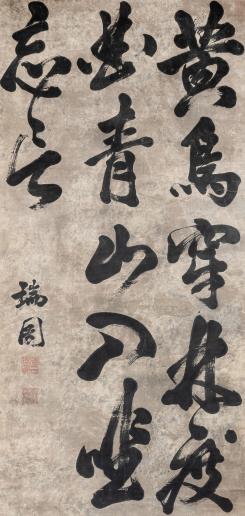 黄鳥穿林度
曲青山入坐
忘言
瑞圖